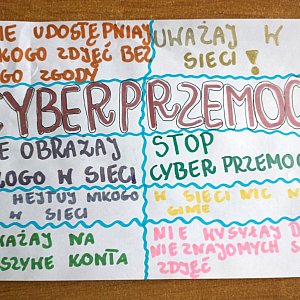 NIE UDOSTĘPNIAJ
NIKOGO ZDJĘĆ BEZ
JEGO ZGODY
UWAŻAJ W
SIECI!
CYBERPRZEMOC
NIE OBRAŻAJ
NIKOGO W SIECI
STOP
CYBER PRZEMOC
HEJTUJ NIKOGO
W SIECI
W SIECI NIC NIE
GINIE
UWAŻAJ NA
KONTA
NIE WYSYŁAJ
NIEZNAJOMYCH
ZDJĘĆ